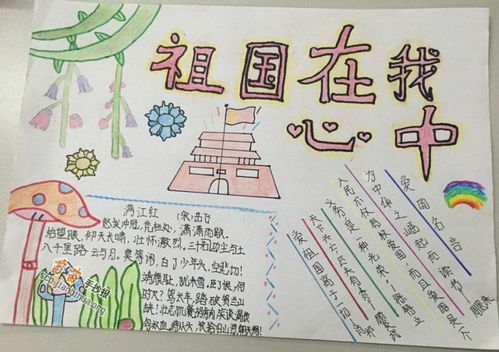 祖国在我
心中
满江红 (宋:岳飞)
怒发冲冠,凭栏处,潇潇雨歇.
抬望眼,仰天长啸,壮怀激烈,三十功名尘与土
八千里路云与月,莫等闲,白了少年头,空悲切!
靖康耻,犹未雪,臣子恨,何
时灭!驾长车,踏破贺兰山
缺!壮志饥餐胡虏肉,笑谈渴饮
匈奴血,待从头,收拾旧山河,朝天阙!
爱国名言
为中华之崛起而读书
周恩来
人民不仅有权爱国,而且爱国是个
义务,是一种光荣,徐特立
天下兴亡,匹夫有责,顾炎武
爱祖国高于一切 肖邦
手抄报